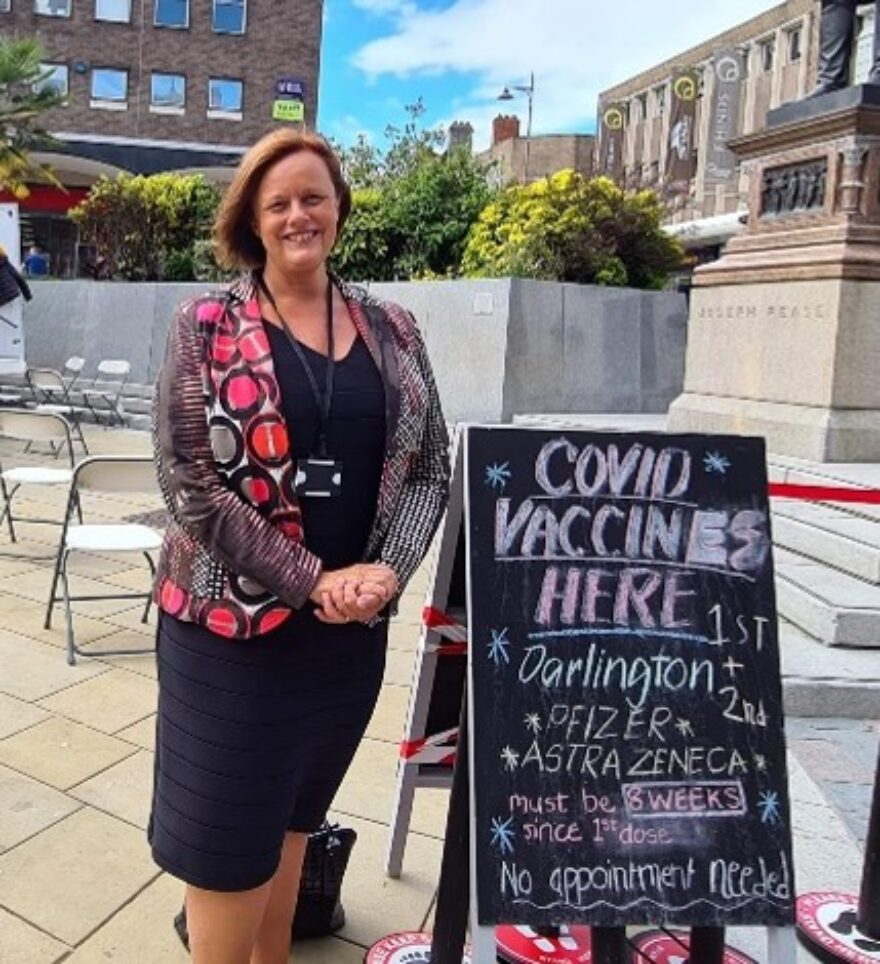 JOSEPH PEASE
COVID
VACCINES
HERE
1ST
Darlington +
2nd
*PFIZER*
*ASTRA ZENECA*
must be 8 WEEKS
since 1st dose
No appointment needed